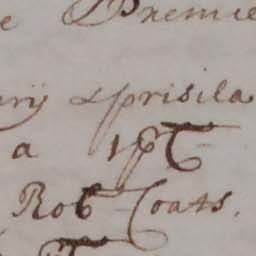 e Premie
erij & prisila
a 1pC
Rob Coats.